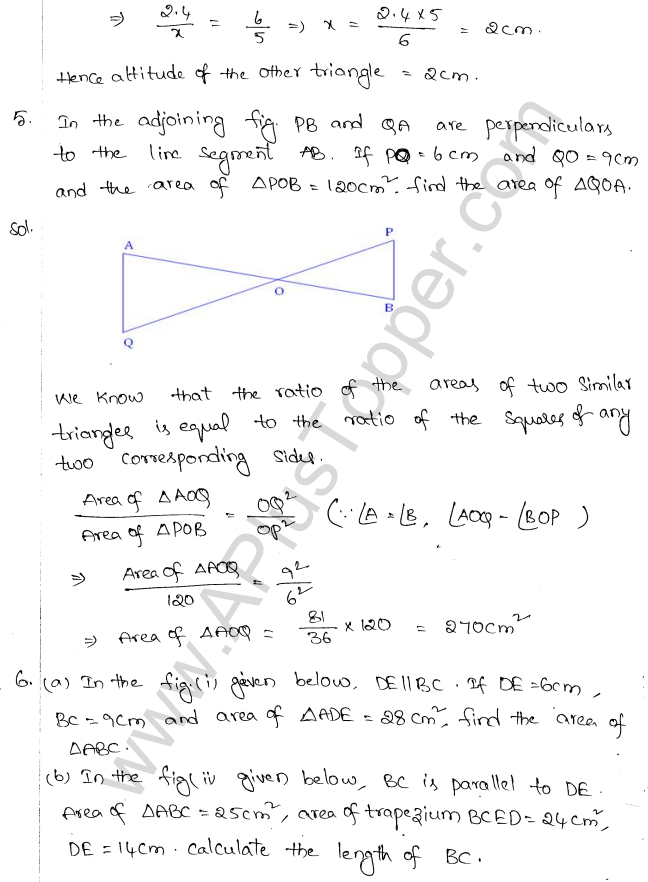 ⇒ 2.4/x = 6/5 ⇒ x = 2.4×5/6 = 2cm.
Hence altitude of the other triangle = 2cm.
5. In the adjoining fig. PB and QA are perpendiculars
to the line segment AB. If PO = 6cm and QO = 9cm
and the area of △POB = 120cm². find the area of △QOA.
Sol.
A
P
O
B
Q
We know that the ratio of the areas of two similar
triangles is equal to the ratio of the squares of any
two corresponding sides.
Area of △AOQ / Area of △POB = OQ²/OP² (∵ ∠A = ∠B, ∠AOQ - ∠BOP )
⇒ Area of △AOQ / 120 = 9²/6²
⇒ Area of △AOQ = 81/36 × 120 = 270cm²
6. (a) In the fig.(i) given below, DE||BC. If DE = 6cm,
BC = 9cm and area of △ADE = 28cm², find the area of
△ABC.
(b) In the fig(iv given below, BC is parallel to DE.
Area of △ABC = 25cm², area of trapezium BCED = 24cm²,
DE = 14cm. calculate the length of BC.
www.APlusTopper.com